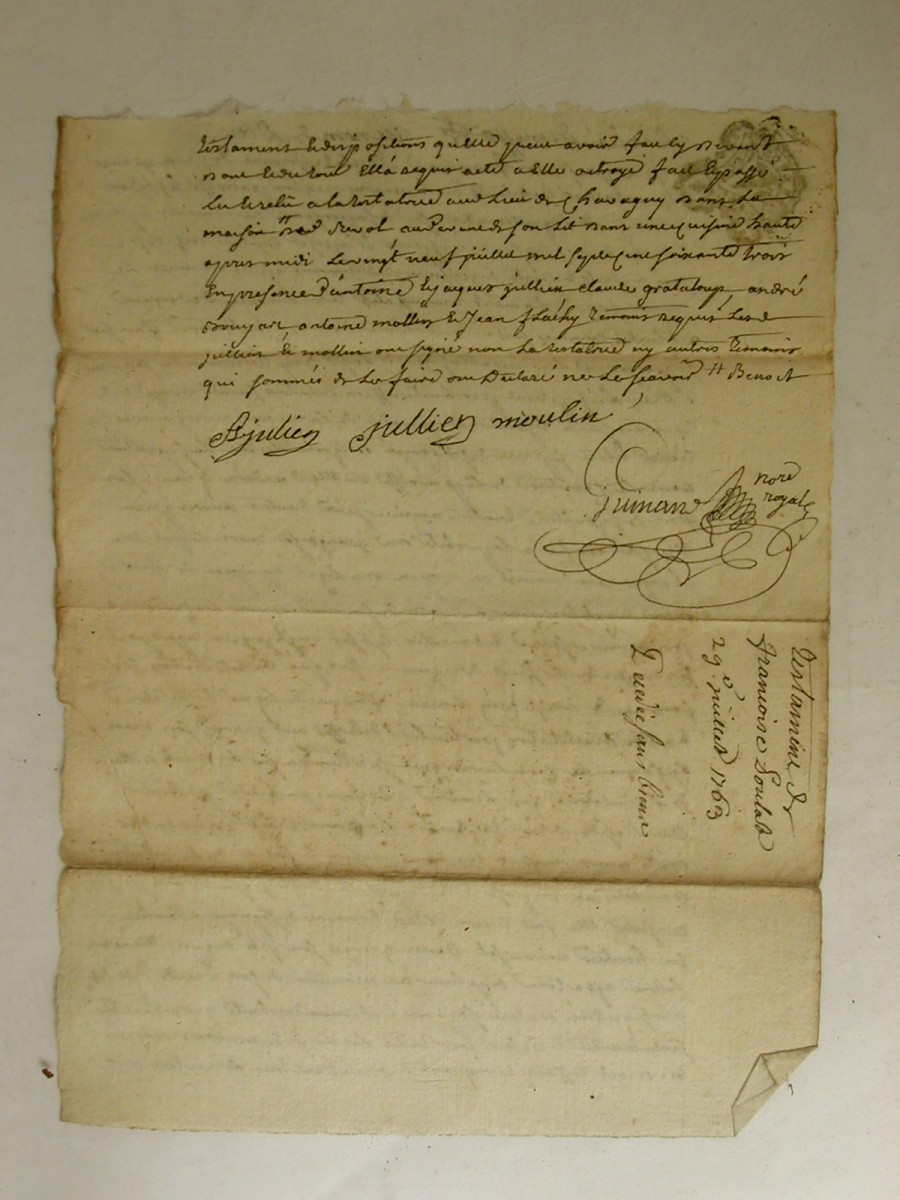 testament & dispositions qu'elle peut avoir fait cy devant
dont & du tout Ella requis acte a Elle octroyé fait & passé
Lu & relu a la testatrice aud Lieu de Chavagny dans La
maison du Sr Revol au devant de son Lit dans une cuisine haute
apres midi Le vingt neuf juillet mil sept cent soixante trois
En presence d'antoine & jacques jullien claude grataloup, andré
antoine mollin & Jean flachy temoins requis Lesd
jullien & mollin ont signé non La testatrice ny autres temoins
qui sommés de Le faire ont Declaré ne Le scavoir Benoit
A julien jullien moulin
guinand nore
royal
testament de
francoise Soulat
29e juillet 1763